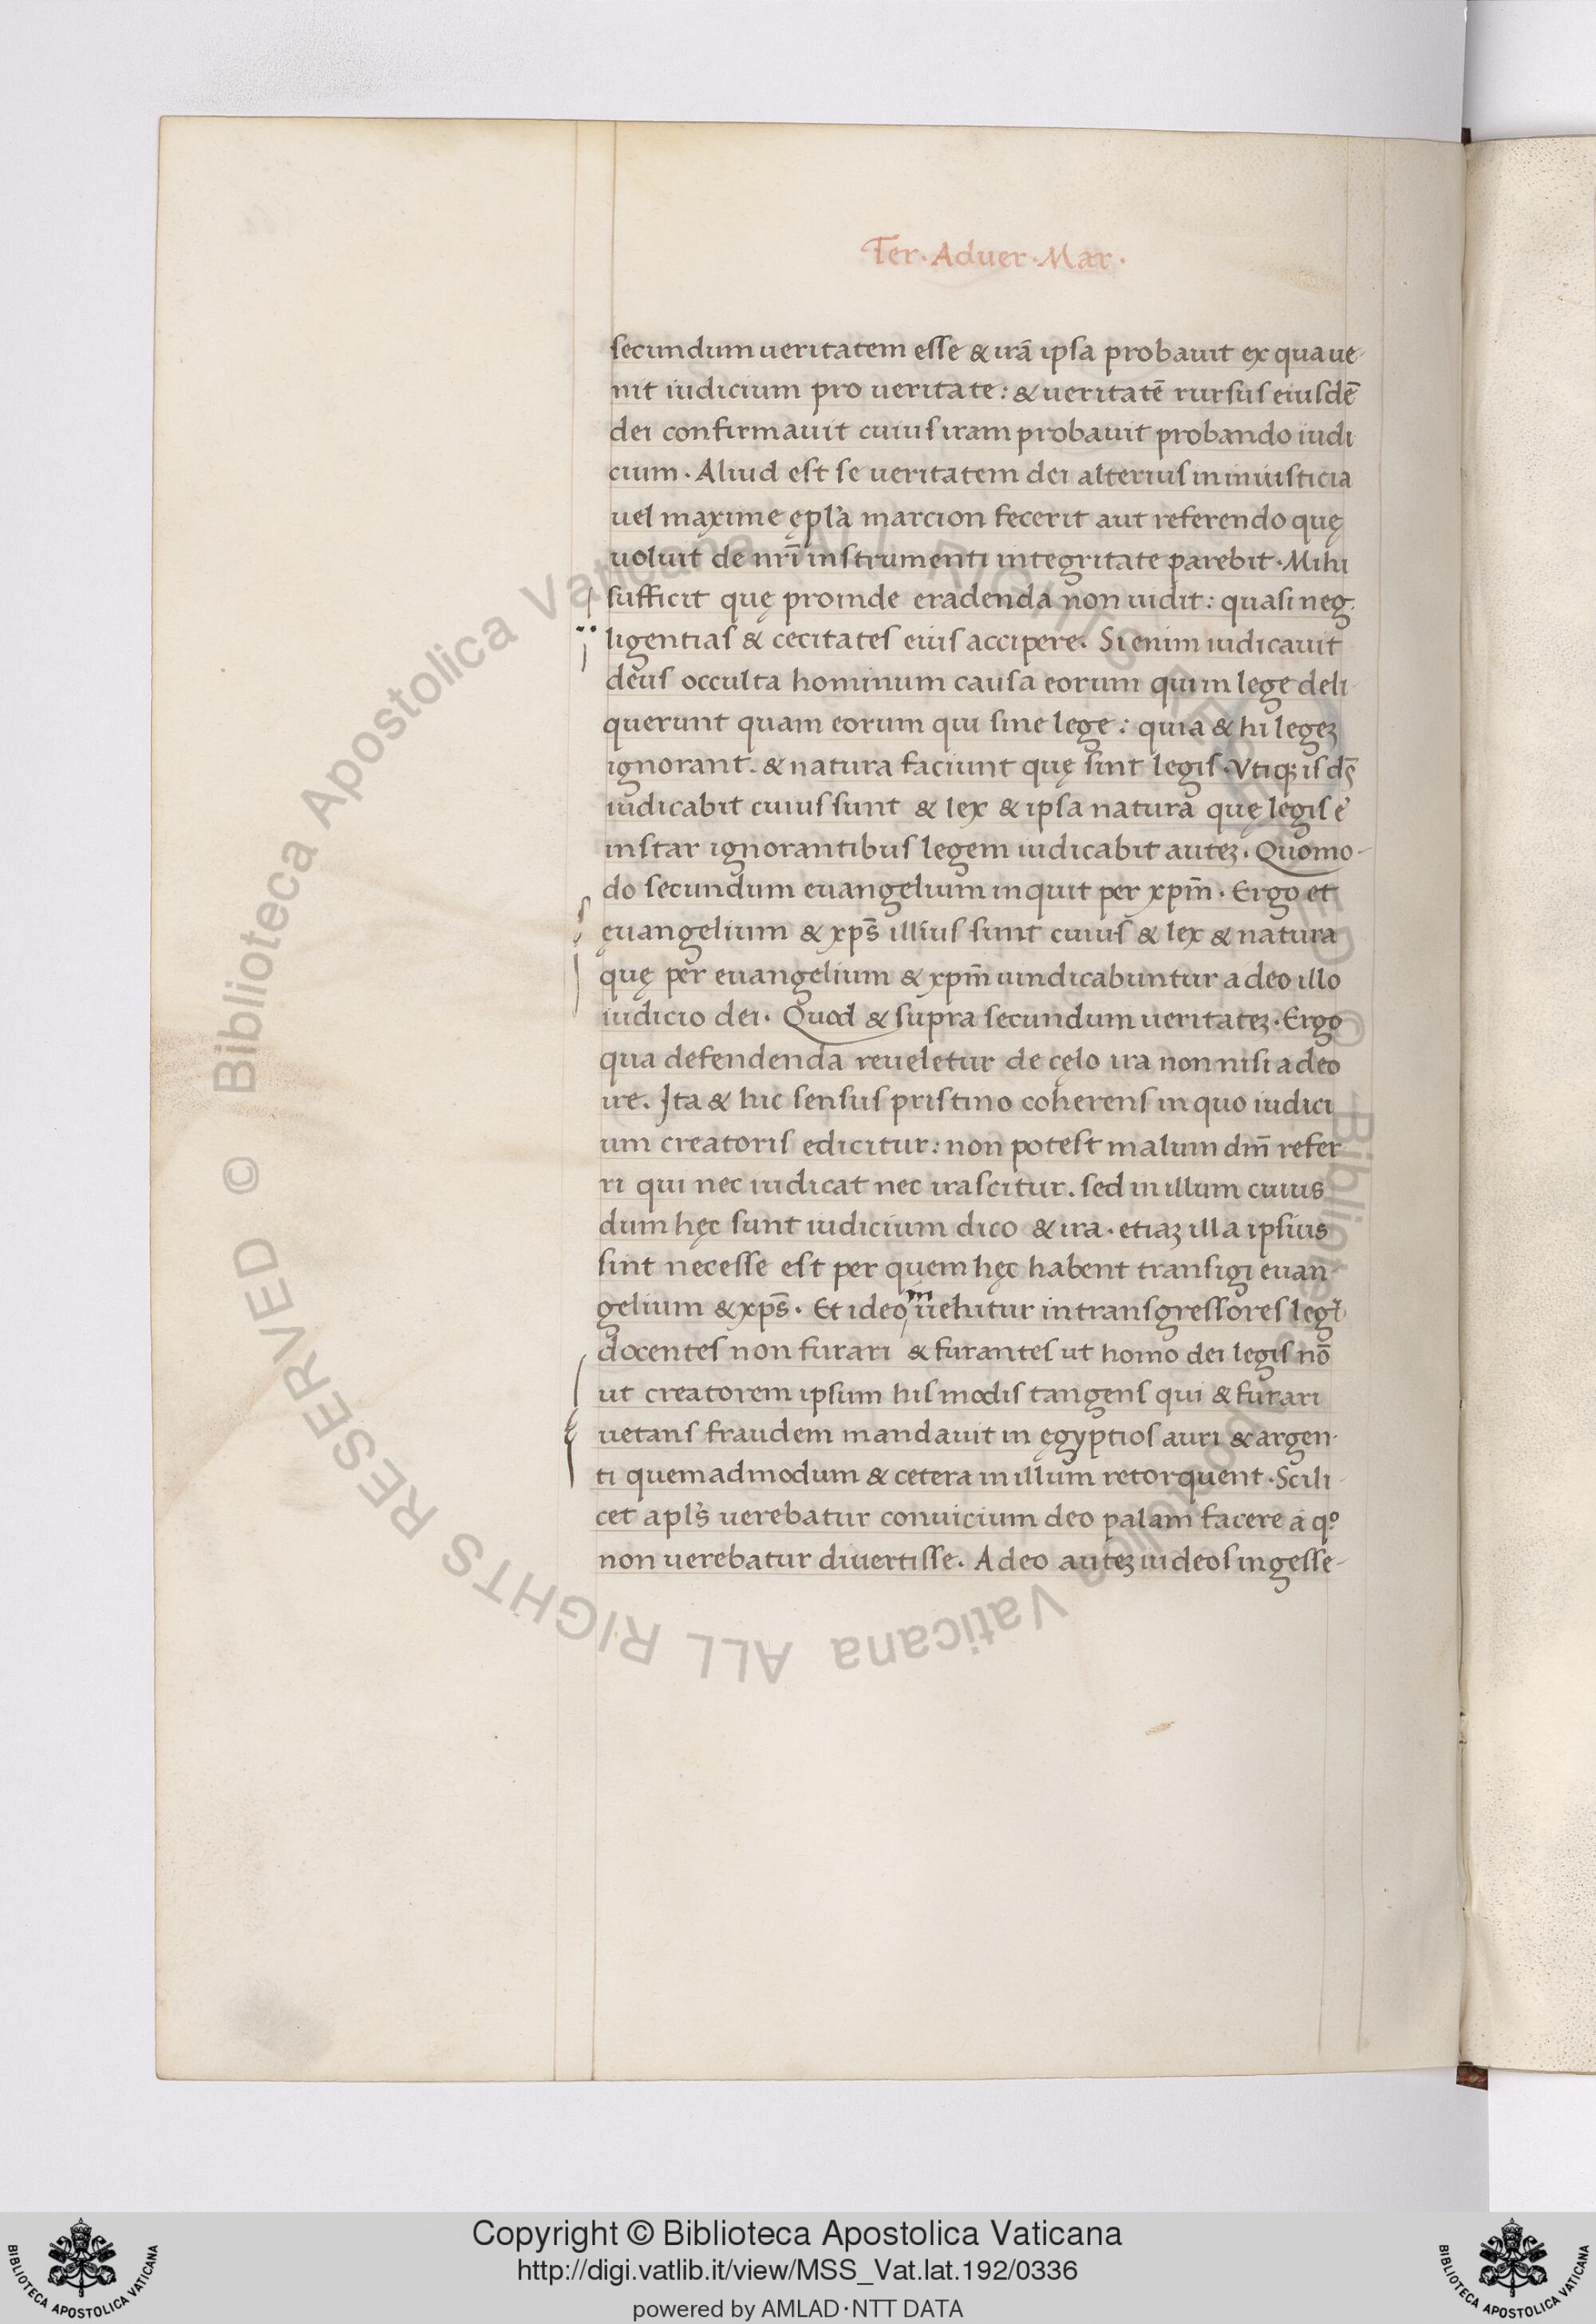 Ter·Aduer·Mar·
secundum ueritatem esse & irā ipsa probauit ex qua ue-
nit iudicium pro ueritate: & ueritatē rursus eiusdē
dei confirmauit cuius iram probauit probando iudi
cium· Aliud est se ueritatem dei alterius in iniusticia
uel maxime ępl'a marcion fecerit aut referendo quę
uoluit de nrī instrumenti integritate parebit· Mihi
sufficit quę proinde eradenda non uidit: quasi neg-
ligentias & cecitates eius accipere. Si enim iudicauit
deus occulta hominum causa eorum qui in lege deli-
querunt quam eorum qui sine lege: quia & hi legeꝫ
ignorant. & natura faciunt quę sint legis· Vtiqꝫ is ds̄
iudicabit cuius sunt & lex & ipsa natura quę legis ē
instar ignorantibus legem iudicabit auteꝫ. Quomo-
do secundum euangelium inquit per xpm̄· Ergo et
ęuangelium & xps̄ illius sunt cuius & lex & natura
quę per euangelium & xpm̄ uindicabuntur a deo illo
iudicio dei· Quod & supra secundum ueritateꝫ· Ergo
qua defendenda reueletur de cęlo ira non nisi a deo
ire. Ita & hic sensus pristino coherens in quo iudici
um creatoris edicitur: non potest malum dm̄ refer
ri qui nec iudicat nec irascitur. sed in illum cuius
dum hęc sunt iudicium dico & ira· etiaꝫ illa ipsius
sint necesse est per quem hęc habent transigi euan-
gelium & xps̄· Et ideo in uehitur in transgressores leg
docentes non furari & furantes ut homo dei legis nō
ut creatorem ipsum his modis tangens qui & furari
uetans fraudem mandauit in ęgyptios auri & argen-
ti quemadmodum & cetera in illum retorquent· Scili-
cet apl's uerebatur conuicium deo palam facere a qº
non uerebatur diuertisse. Adeo auteꝫ iudeos ingesse-
© Biblioteca Apostolica Vaticana ALL RIGHTS RESERVED
© Biblioteca Apostolica Vaticana ALL RIGHTS RESERVED
Copyright © Biblioteca Apostolica Vaticana
http://digi.vatlib.it/view/MSS_Vat.lat.192/0336
powered by AMLAD·NTT DATA
BIBLIOTECA APOSTOLICA VATICANA
BIBLIOTECA APOSTOLICA VATICANA